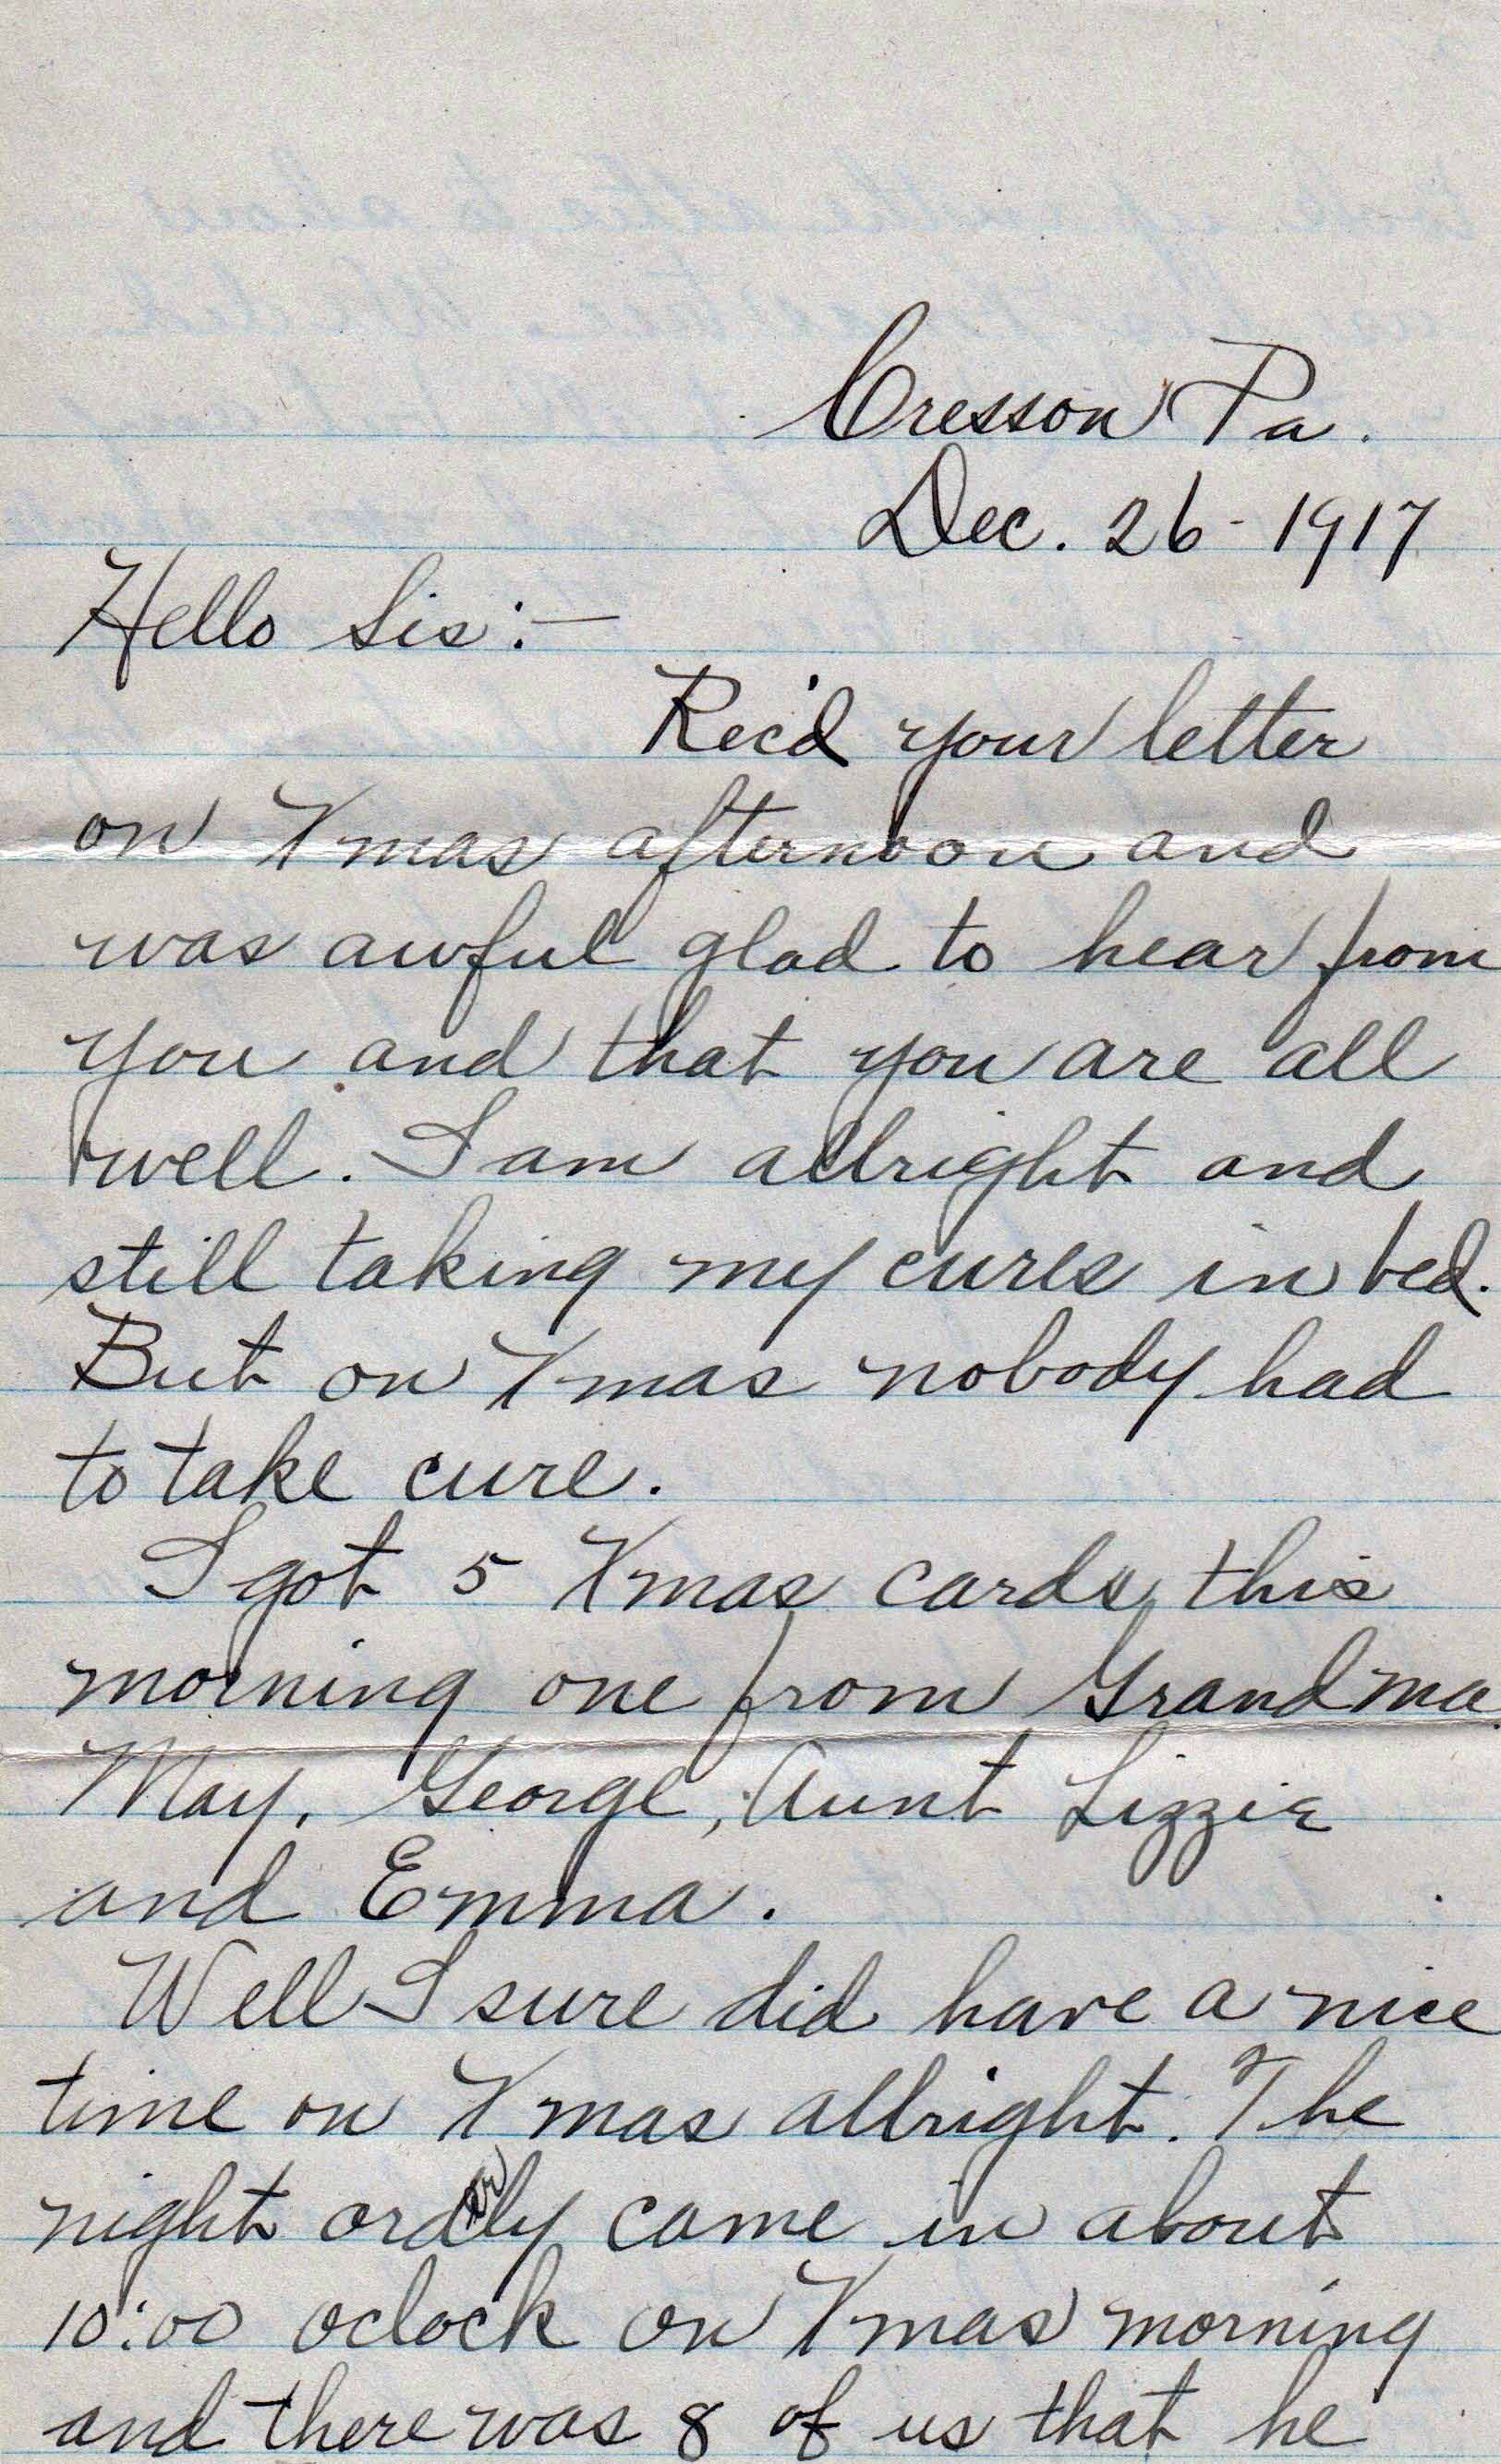 Cresson Pa.
Dec. 26 - 1917
Hello Sis:—
Rec'd your letter
on Xmas afternoon and
was awful glad to hear from
you and that you are all
well. I am allright and
still taking my cures in bed.
But on Xmas nobody had
to take cure.
I got 5 Xmas cards this
morning one from Grandma
May, George, Aunt Lizzie
and Emma.
Well I sure did have a nice
time on Xmas allright. The
night orderly came in about
10:00 oclock on Xmas morning
and there was 8 of us that he